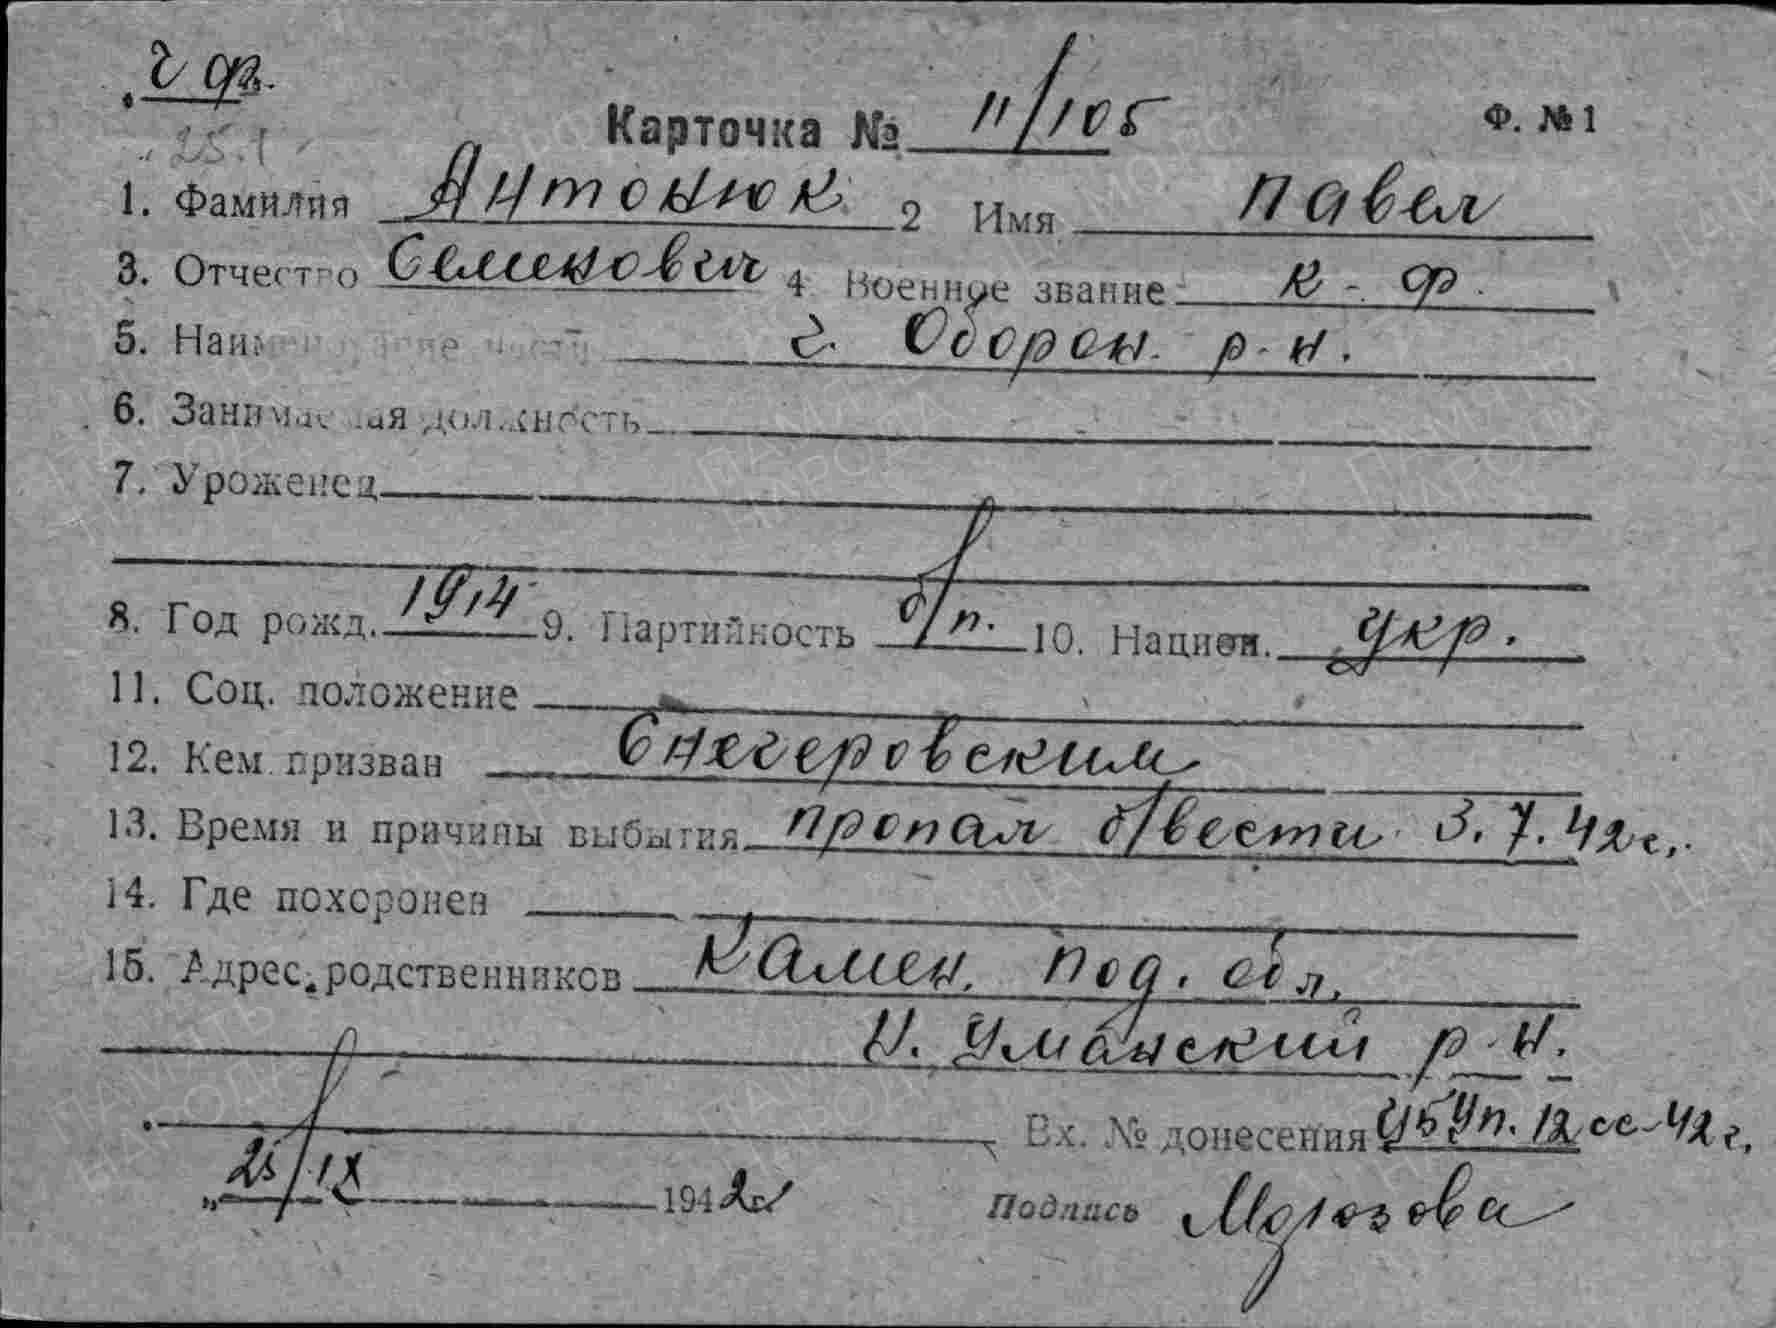 Карточка № 11/105 Ф. № 1
1. Фамилия Антонюк 2 Имя Павел
3. Отчество Семенович 4 Военное звание к-ф.
5. Наименование части г. Оборон. р-н.
6. Занимаемая должность
7. Уроженец
8. Год рожд. 1914 9. Партийность б/п. 10. Национ. укр.
11. Соц. положение
12. Кем призван Снегеровским
13. Время и причины выбытия пропал б/вести 3.7.42г.
14. Где похоронен
15. Адрес родственников Камен. Под. обл.
Н. Уманский р-н.
Вх. № донесения 12 сс-42г.
25/IX 1942г
Подпись Морозова